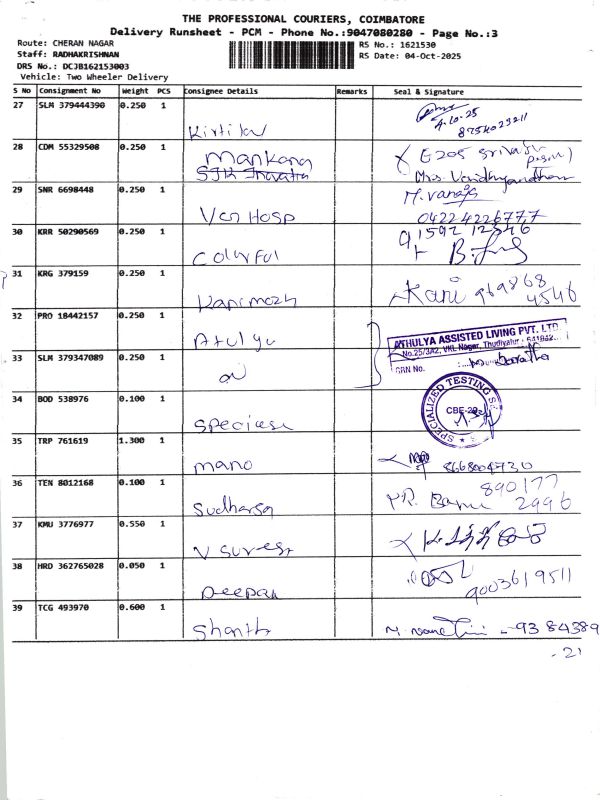 THE PROFESSIONAL COURIERS, COIMBATORE
Delivery Runsheet - PCM - Phone No.:9047080280 - Page No.:3
Route: CHERAN NAGAR
RS No.: 1621530
Staff: RADHAKRISHNAN
RS Date: 04-Oct-2025
DRS No.: DCJB162153003
Vehicle: Two Wheeler Delivery
S No Consignment No Weight PCS Consignee Details Remarks Seal & Signature
27 SLM 379444390 0.250 1
4.10.25
Kirtika
28 CDM 55329508 0.250 1
Mankang E205
29 SNR 6698448 0.250 1 M. vanaja
Ven Hosp 04224226777
30 KRR 50290569 0.250 1
Colurful
31 KRG 379159 0.250 1
Kanimozh Kani 969868
4546
32 PRO 18442157 0.250 1
Atulyu
ATHULYA ASSISTED LIVING PVT. LTD
No.25/3A2, VKL Nagar, Thudiyalur
33 SLM 379347089 0.250 1
GRN No.
34 BOD 538976 0.100 1
SPECIALIZED TESTING
CBE-29
35 TRP 761619 1.300 1
mano 8668004730
36 TEN 8012168 0.100 1
Sudharsa 890177
2996
37 KMU 3776977 0.550 1
V Suresh
38 HRD 362765028 0.050 1
Deepak 9003619511
39 TCG 493970 0.600 1
Shanth - 9384389
- 21